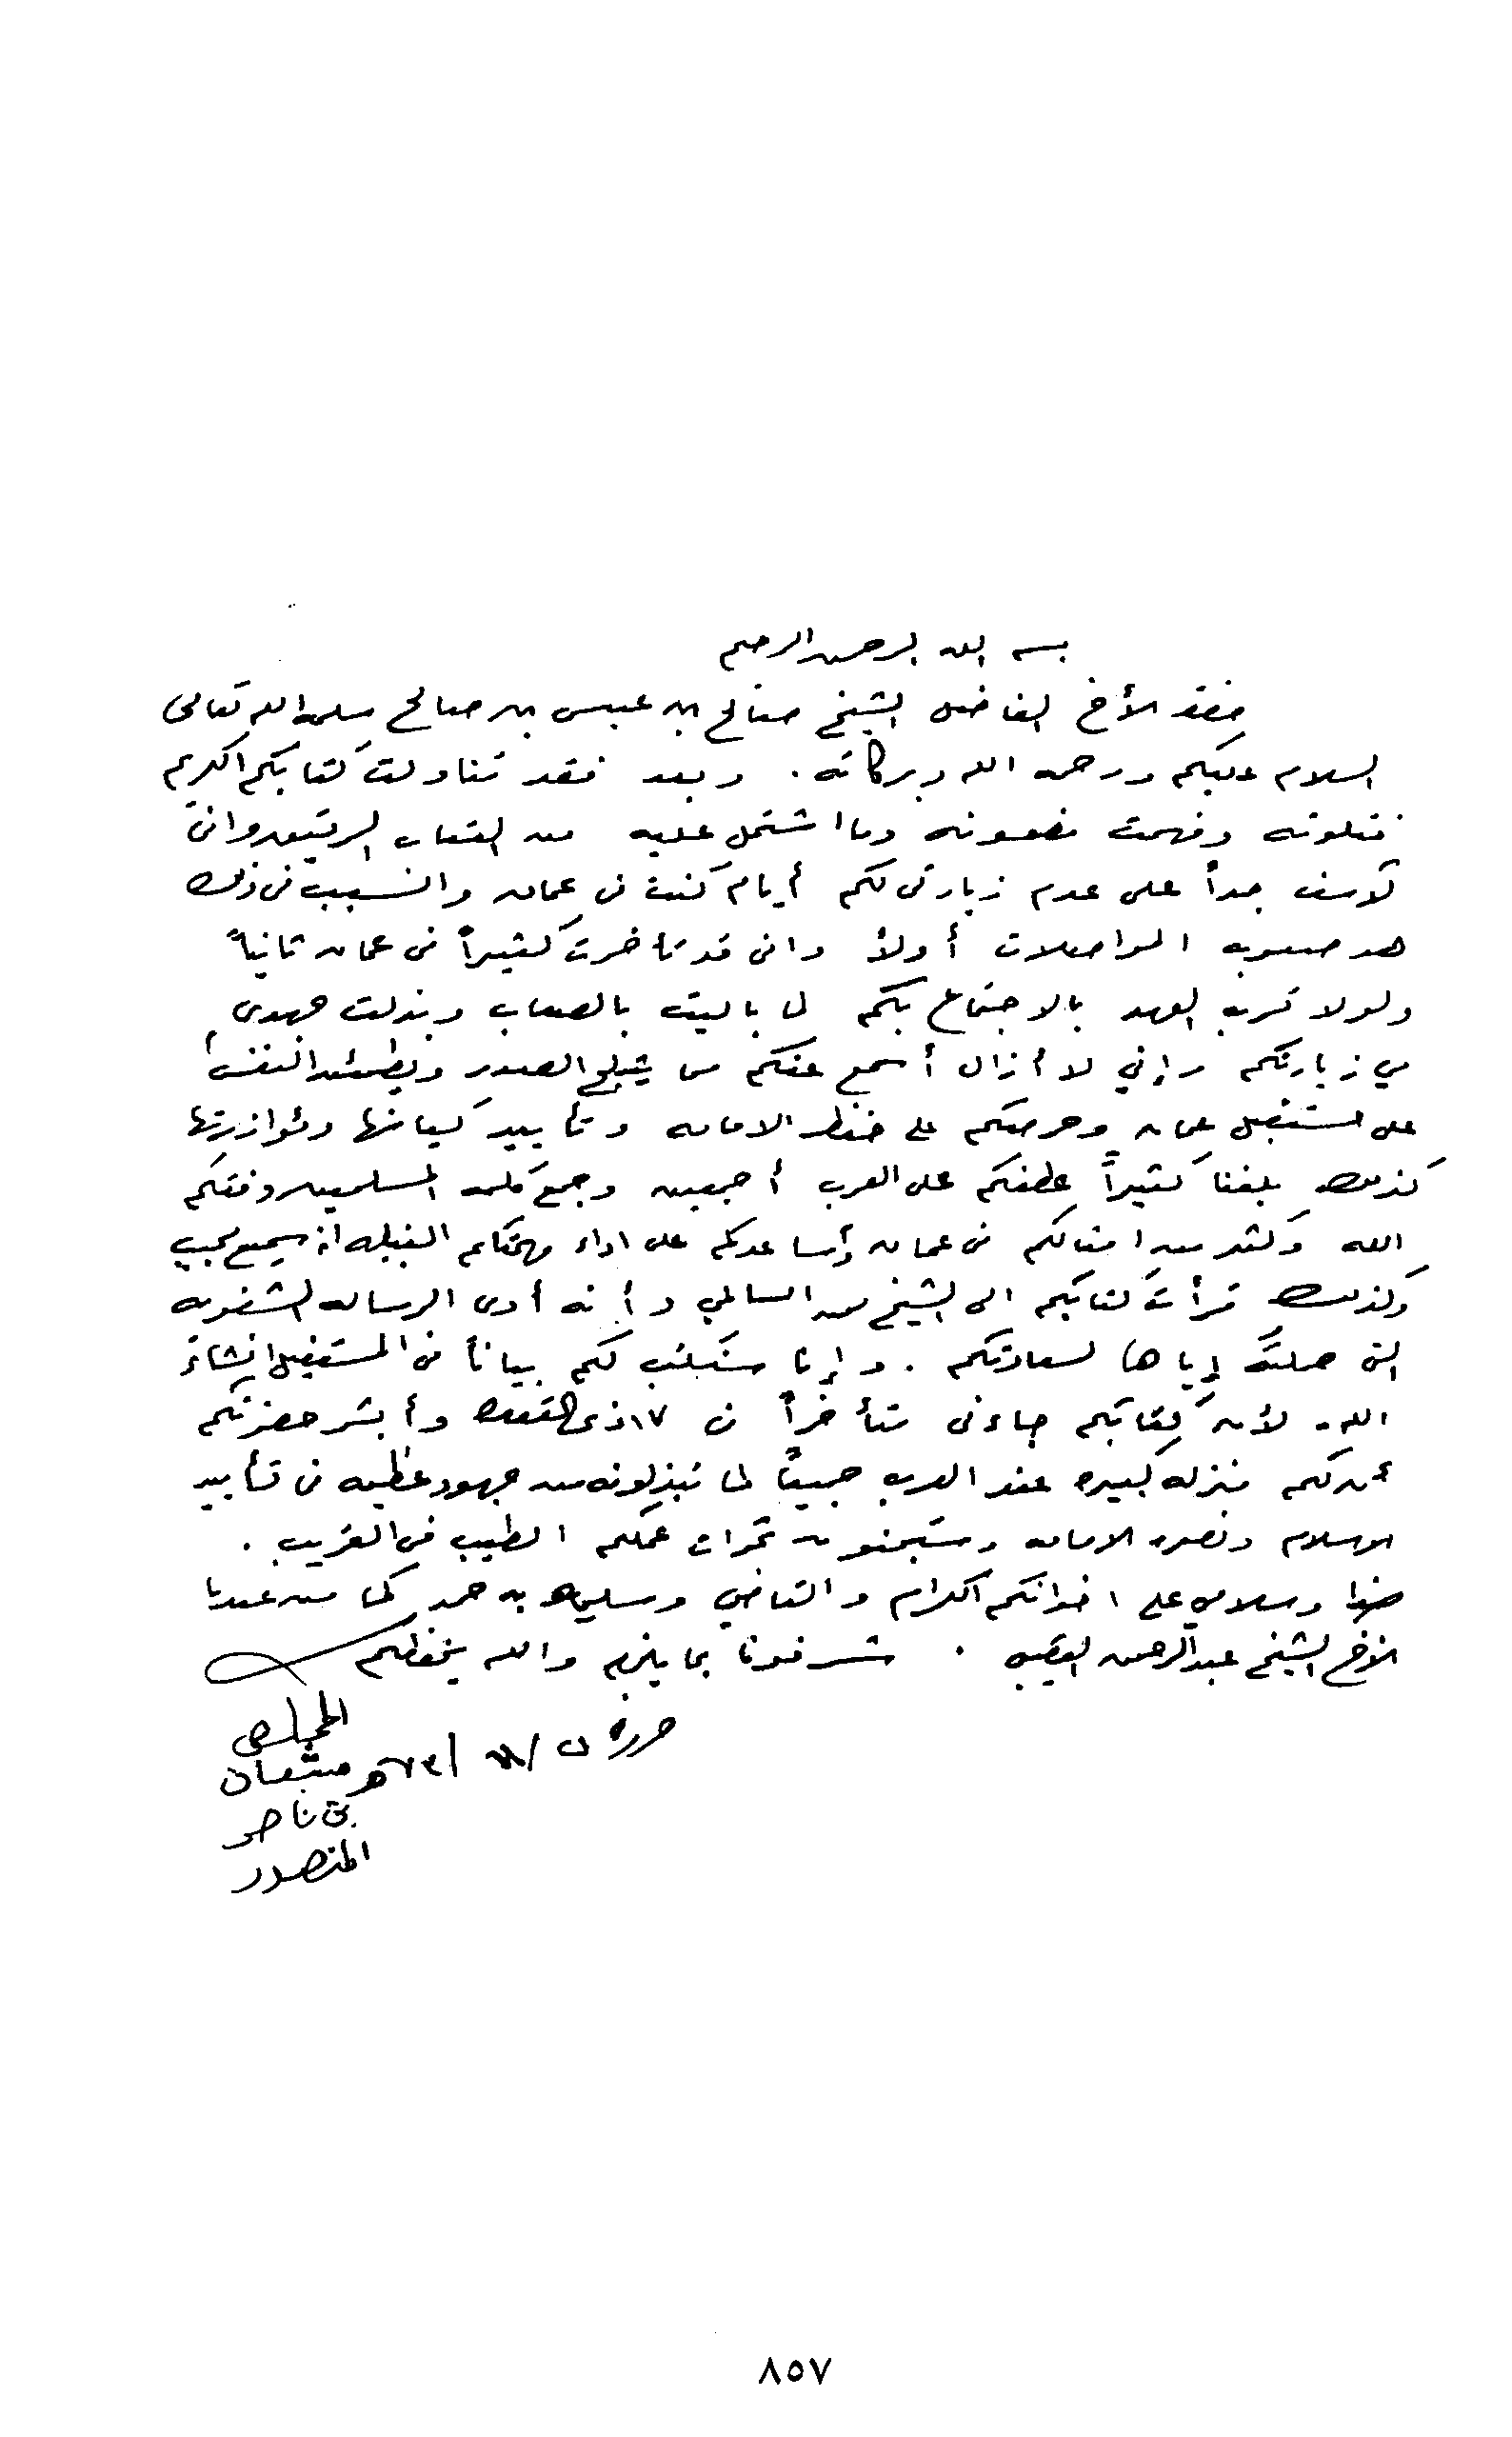 بسم الله الرحمن الرحيم
حضرة الأخ الفاضل الشيخ صالح بن عيسى بن صالح سلمه الله تعالى
السلام عليكم ورحمة الله وبركاته . وبعد فقد تناولت كتابكم الكريم
فتلوته وفهمت مضمونه وما اشتمل عليه من العتاب الرقيق واني
لآسف جداً على عدم زيارتى لكم أيام كنت فى عمان والسبب فى ذلك
هو صعوبة المواصلات أولاً وانى قد تأخرت كثيراً فى عمان ثانياً
ولولا قرب العهد بالاجتماع بكم لما باليت بالصعاب وبذلت جهدى
في زيارتكم وإني لا أزال أسمع عنكم ما يثلج الصدور ويطمئن النفس
على مستقبل عمان وحرصكم على حفظ الامامه وتأييد كيانها ومؤازرتها
كذلك بلغنا كثيراً عطفكم على العرب أجمعين وجمع كلمة المسلمين وفقكم
الله وكثر من امثالكم فى عمان وأساعدكم على اداء مهمتكم النبيله انه سميع مجيب
وكذلك قرأت كتابكم الى الشيخ محمد السالمي وأنه أدى الرساله الشفويه
التى حملته إياها لسعادتكم . وإنا سنكتب لكم بياناً فى المستقبل انشاء
الله . لأن كتابكم جاءنى متأخراً فى ١٧ ذى القعده وأبشر حضرتكم
أن لكم منزله كبيره عند العرب جميعاً لما تبذلونه من جهود عظيمه فى تأييد
الاسلام ونصرة الامامه وستجنون ثمرات عملكم الطيب فى القريب .
هذا وسلامي على اخوانكم الكرام والقاضي وسليمان بن حمد كما من عندنا
الأخ الشيخ عبدالرحمن . شرفونا بما يلزم والله يحفظكم
المخلص
حرر فى / ١١ / ٧٣هـ
بن ناصر
المنصور
٨٥٧